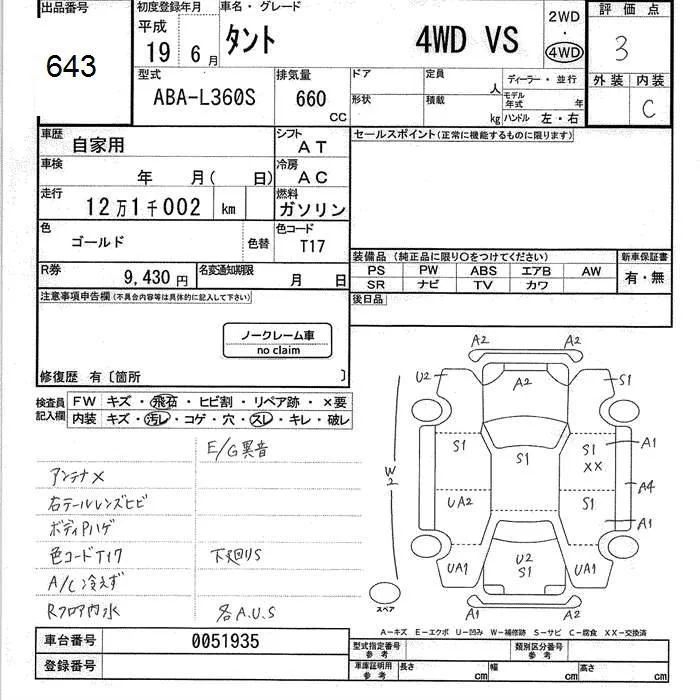 出品番号
643
初度登録年月
平成
19 6 月
車名・グレード
タント 4WD VS
2WD
・
4WD
評価点
3
外装 内装
C
型式
ABA-L360S
排気量
660
CC
ドア
形状
定員
人
積載
kg
ディーラー・並行
モデル
年式 年
ハンドル 左・右
車歴
自家用
シフト
AT
車検
年 月( 日)
冷房
AC
走行
12万1千002 km
燃料
ガソリン
色
ゴールド
色替
色コード
T17
R券
9,430 円
名変通知期限
月 日
セールスポイント(正常に機能するものに限ります)
装備品 (純正品に限り○をつけてください)
PS PW ABS エアB AW
SR ナビ TV カワ
新車保証書
有・無
後日品
注意事項申告欄(不具合内容等は具体的に記入して下さい)
ノークレーム車
no claim
修復歴 有〔箇所 〕
検査員
記入欄
FW キズ・飛石・ヒビ割・リペア跡・×要
内装 キズ・汚レ・コゲ・穴・スレ・キレ・破レ
E/G異音
アンテナX
右テールレンズヒビ
ボディPハゲ
色コードT17 下廻りS
A/C冷えず
Rフロア内水 各A.U.S
A2
A2
U2 A2 S1
S1 S1 S1 A1
XX
W2
UA2 S1 A4
A1
UA1 U2 UA1
S1
A1 A2
スペア
A-キズ E-エクボ U-凹み W-補修跡 S-サビ C-腐食 XX-交換済
車台番号 0051935
登録番号
型式指定番号
参考
類別区分番号
参考
車庫証明用
参考
長さ cm 幅 cm 高さ cm